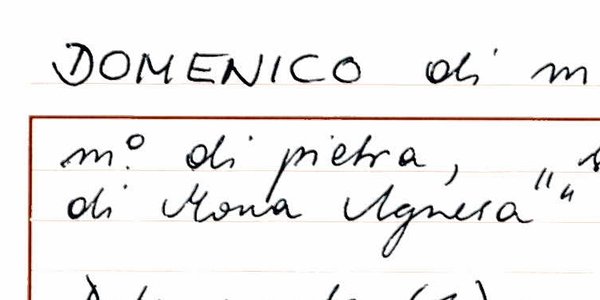 DOMENICO di m
m.º di pietra,
di Mona Agnesa""